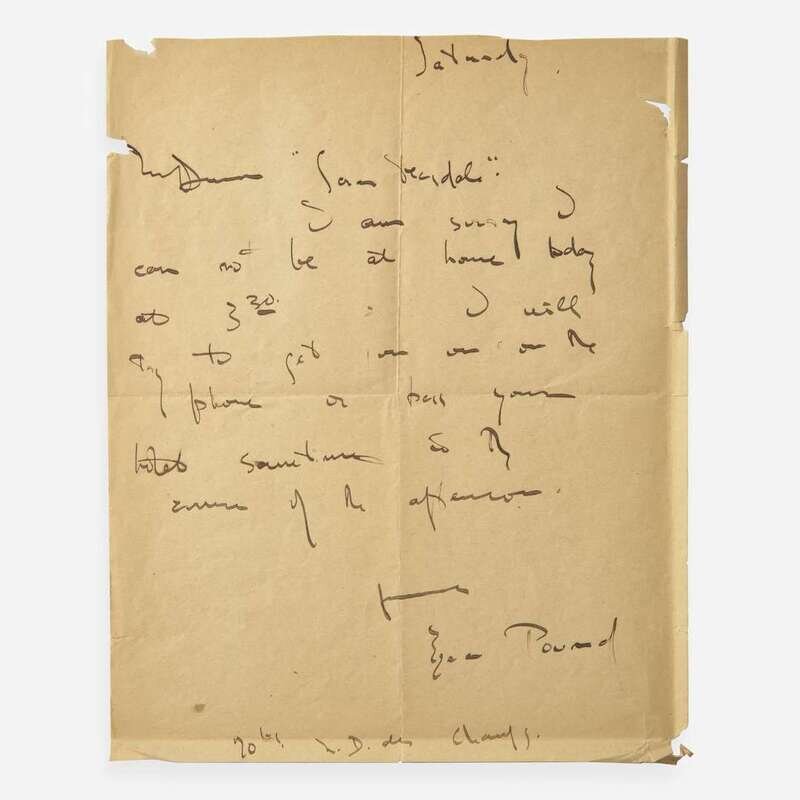 Saturday.
"Sara Teasdale":
I am sorry I
can not be at home today
at 3 30. I will
try to get on the
phone or pass your
hotel sometime in the
course of the afternoon.
Ezra Pound
70 bis. N. D. des Champs.